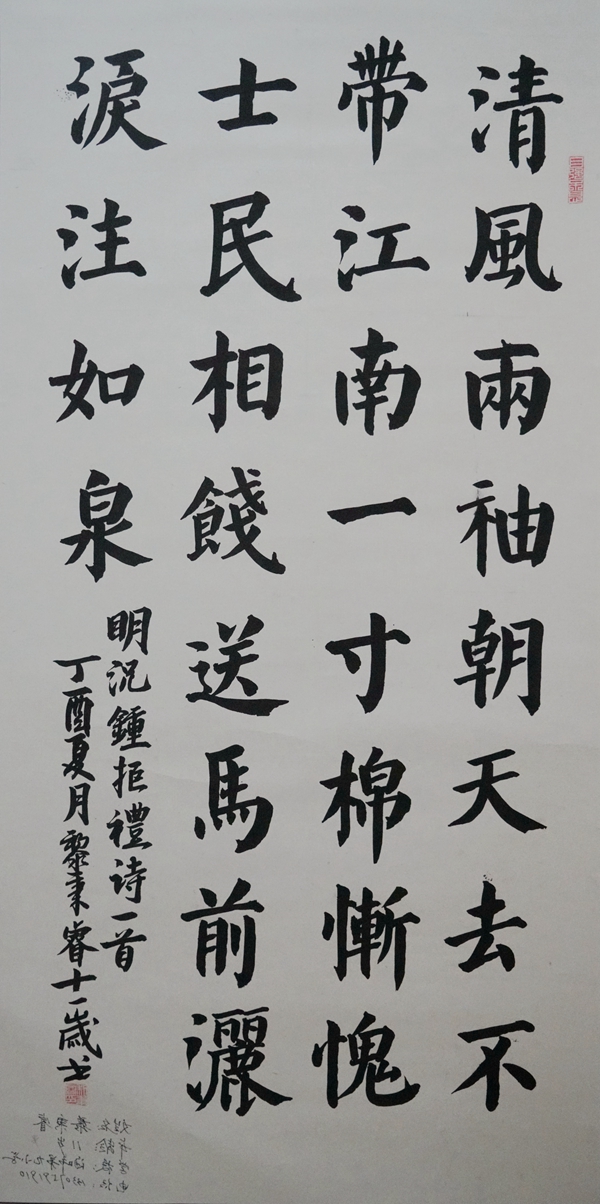 清風兩袖朝天去不
帶江南一寸棉慚愧
士民相餞送馬前灑
淚注如泉
明況鍾拒禮詩一首
丁酉夏月黎秉睿十一歲书